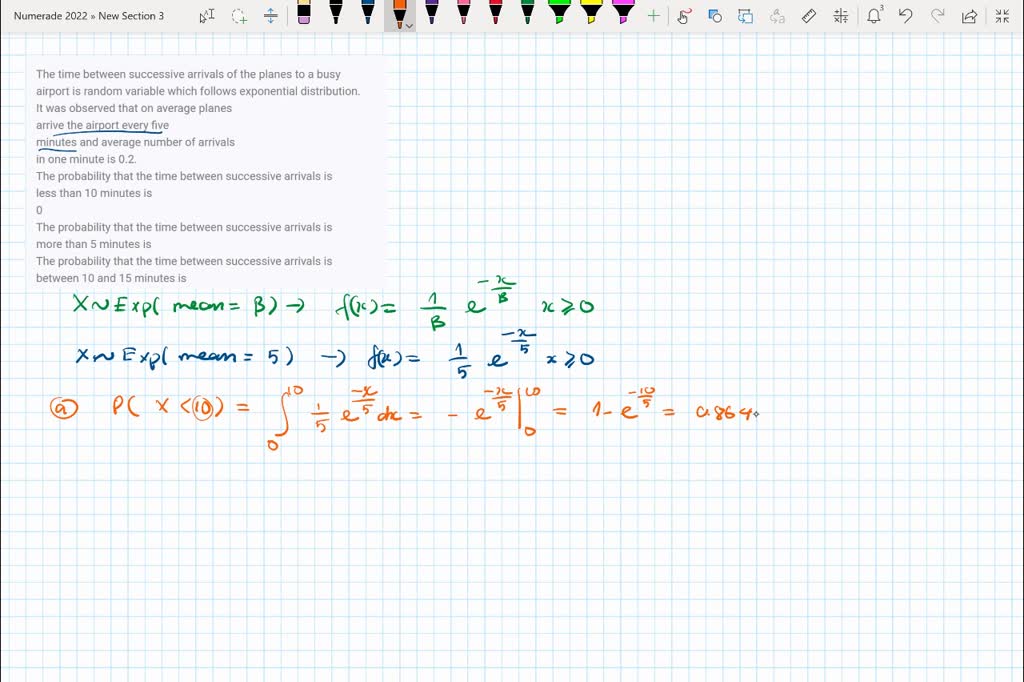 Numerade 2022 » New Section 3
3
The time between successive arrivals of the planes to a busy
airport is random variable which follows exponential distribution.
It was observed that on average planes
arrive the airport every five
minutes and average number of arrivals
in one minute is 0.2.
The probability that the time between successive arrivals is
less than 10 minutes is
0
The probability that the time between successive arrivals is
more than 5 minutes is
The probability that the time between successive arrivals is
between 10 and 15 minutes is
X ~ Exp( mean = β) → f(x) = 1/β e^(-x/β) x ≥ 0
X ~ Exp( mean = 5) → f(x) = 1/5 e^(-x/5) x ≥ 0
ⓐ P( X < 10) = ∫₀¹⁰ 1/5 e^(-x/5) dx = - e^(-x/5) |₀¹⁰ = 1 - e^(-10/5) = 0.864